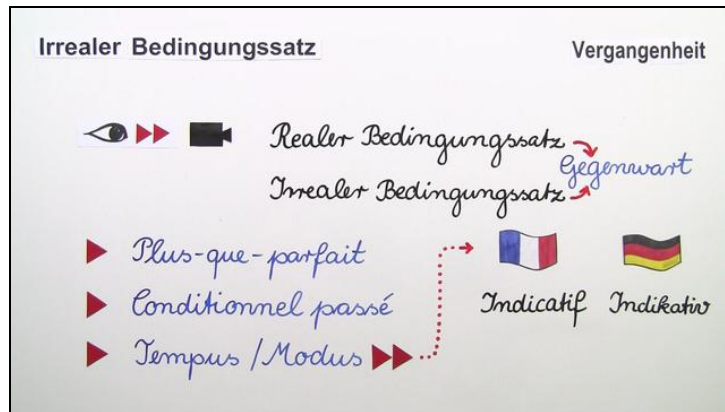 Irrealer Bedingungssatz
Vergangenheit
Realer Bedingungssatz
Gegenwart
Irrealer Bedingungssatz
Plus-que-parfait
Conditionnel passé
Tempus / Modus
Indicatif Indikativ